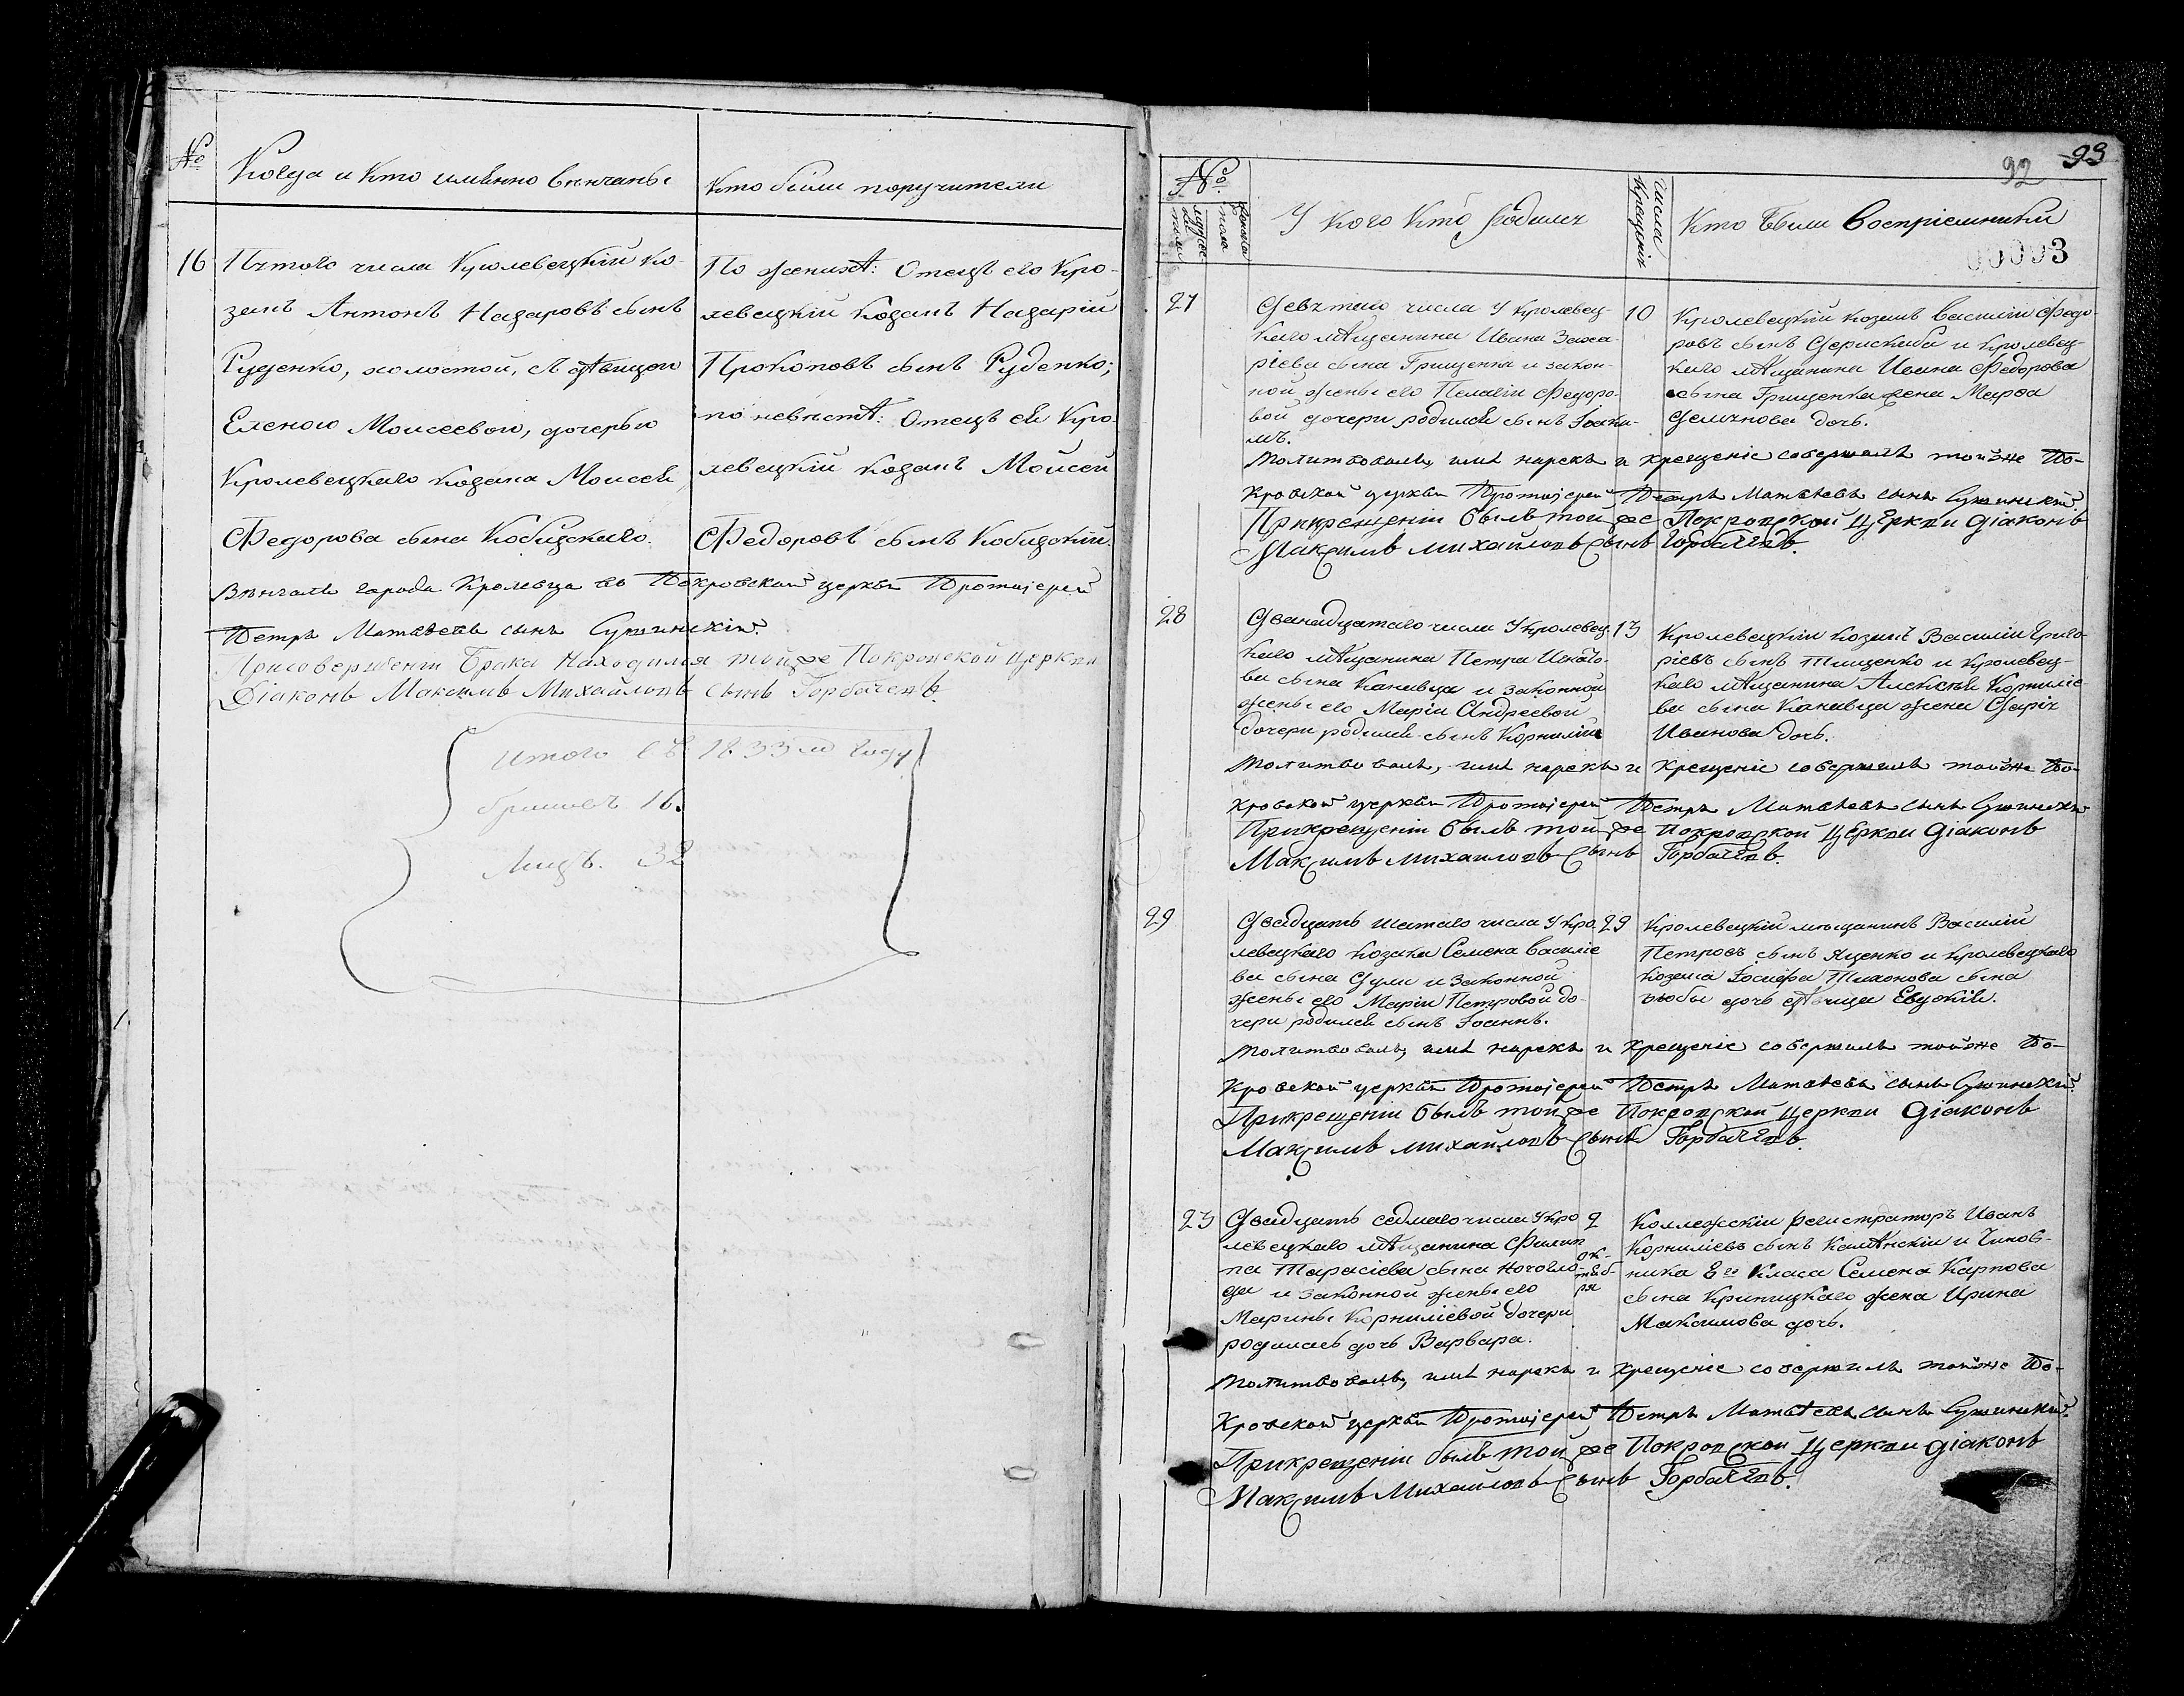 №
Когда и кто именно вѣнчаны
Кто были поручители
16
Пятого числа Кролевецкій ко-
закъ Антонъ Назаровъ сынъ
Руденко, холостой, съ дѣвицею
Еленою Моисеевою, дочерью
Кролевецкаго козака Моисея
Федорова сына Кобицскаго.
По женихѣ: Отецъ его Кро-
левецкій Козакъ Назарій
Прокоповъ сынъ Руденко;
по невѣстѣ: Отецъ ея Кро-
левецкій козакъ Моисей
Федоровъ сынъ Кобицскій.
Вѣнчалъ города Кролевца въ Покровской церкви Протоіерей
Петръ Матвѣевъ сынъ
При совершеніи Брака Находился той же Покровской Церкви
Діаконъ Максимъ Михайловъ сынъ Горбачевъ.
Итого въ 1833м году
браковъ 16.
Лицъ. 32
92 93
00093
№
мужеска пола
женска пола
У кого кто родился
Числа Крещенія
Кто были Воспріемники
27
Девятаго числа У Кролевец-
каго мѣщанина Ивана Заха-
ріева сына Грищенка и закон-
ной жены его Пелагіи Федоро-
вой дочери родился сынъ Іоаки-
мъ.
10
Кролевецкій козакъ Василій Федо-
ровъ сынъ и Кролевец-
каго мѣщанина Ивана Федорова
сына Грищенка жена Марфа
Демьянова дочь.
Молитвовалъ, имя нарекъ и крещеніе совершилъ тойже По-
кровской церкви Протоіерей Петръ Матвѣевъ сынъ
При крещеніи былъ той же Покровской Церкви Діаконъ
Максимъ Михайловъ Сынъ Горбачевъ.
28
Дванадцатаго числа У Кролевец-
каго мѣщанина Петра Игнато-
ва сына Канивца и законной
жены его Маріи Андреевой
дочери родился сынъ Корнилій
13
Кролевецкій Козакъ Василій Григо-
ріевъ сынъ Тищенко и Кролевец-
каго мѣщанина Алексѣя Корниліе-
ва сына Канивца жена Дарія
Иванова дочь.
Молитвовалъ, имя нарекъ и крещеніе совершилъ тойже По-
кровской церкви Протоіерей Петръ Матвѣевъ сынъ
При крещеніи былъ той же Покровской Церкви Діаконъ
Максимъ Михайловъ Сынъ Горбачевъ.
29
Двадцать шатаго числа У Кро-
левецкаго козака Семена Василіе-
ва сына и Законной
жены его Маріи Петровой до-
чери родился сынъ Іоаннъ.
29
Кролевецкій мѣщанинъ Василій
Петровъ сынъ Яценко и Кролевецкаго
козака Іосифа Тихонова сына
дочь дѣвица Евдокія.
Молитвовалъ, имя нарекъ и крещеніе совершилъ тойже По-
кровской церкви Протоіерей Петръ Матвѣевъ сынъ
При крещеніи былъ той же Покровской Церкви Діаконъ
Максимъ Михайловъ Сынъ Горбачевъ.
23
Двадцать седмаго числа У Кро-
левецкаго мѣщанина Филип-
па Тарасіева сына
и законной жены его
Марины Корниліевой дочери
родилась дочь Варвара.
2
ок-
тяб-
ря
Коллежскій регистраторъ Иванъ
Корниліевъ сынъ Каменскій и Чинов-
ника 8го Класа Семена Карпова
сына Криницкаго жена Ирина
Максимова дочь.
Молитвовалъ, имя нарекъ и крещеніе совершилъ тойже По-
кровской церкви Протоіерей Петръ Матвѣевъ сынъ
При крещеніи былъ той же Покровской Церкви Діаконъ
Максимъ Михайловъ Сынъ Горбачевъ.